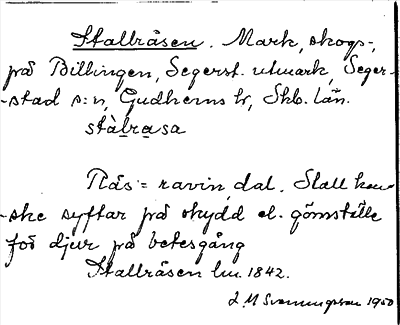 Stallråsen. Mark, skogs-,
på Billingen, Segerst. utmark, Seger-
-stad s:n, Gudhems hr, Skb. län.
stàlrasa
Rås = ravin, dal. Stall kan-
-ske syftar på skydd el. gömställe
för djur på betesgång
Stallråsen lm. 1842.
1950